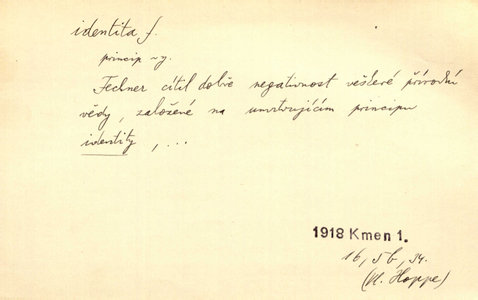 identita f.
princip ~y.
Fechner cítil dobře negativnost veškeré přírodní
vědy, založené na umrtvujícím principu
identity, ...
1918 Kmen 1.
16, 5b, 34.
(Vl. Hoppe)